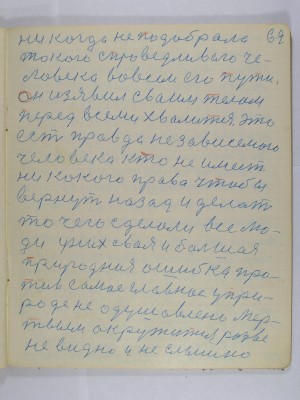 69
ни когда не подобрала
токого справедливаго че-
ловека вовсем его пути.
Он изявил сваим телом
перед всеми хвалится это
ест правда независемого
человека кто не имеет
ни какого права чтобы
вернут назад и делат
то чего сделали все лю-
ди у них свая и балшая
природная ошибка про-
тив самое главное упри-
роде не одушавлено Мер-
твым окружится разве
не видно и не слышно